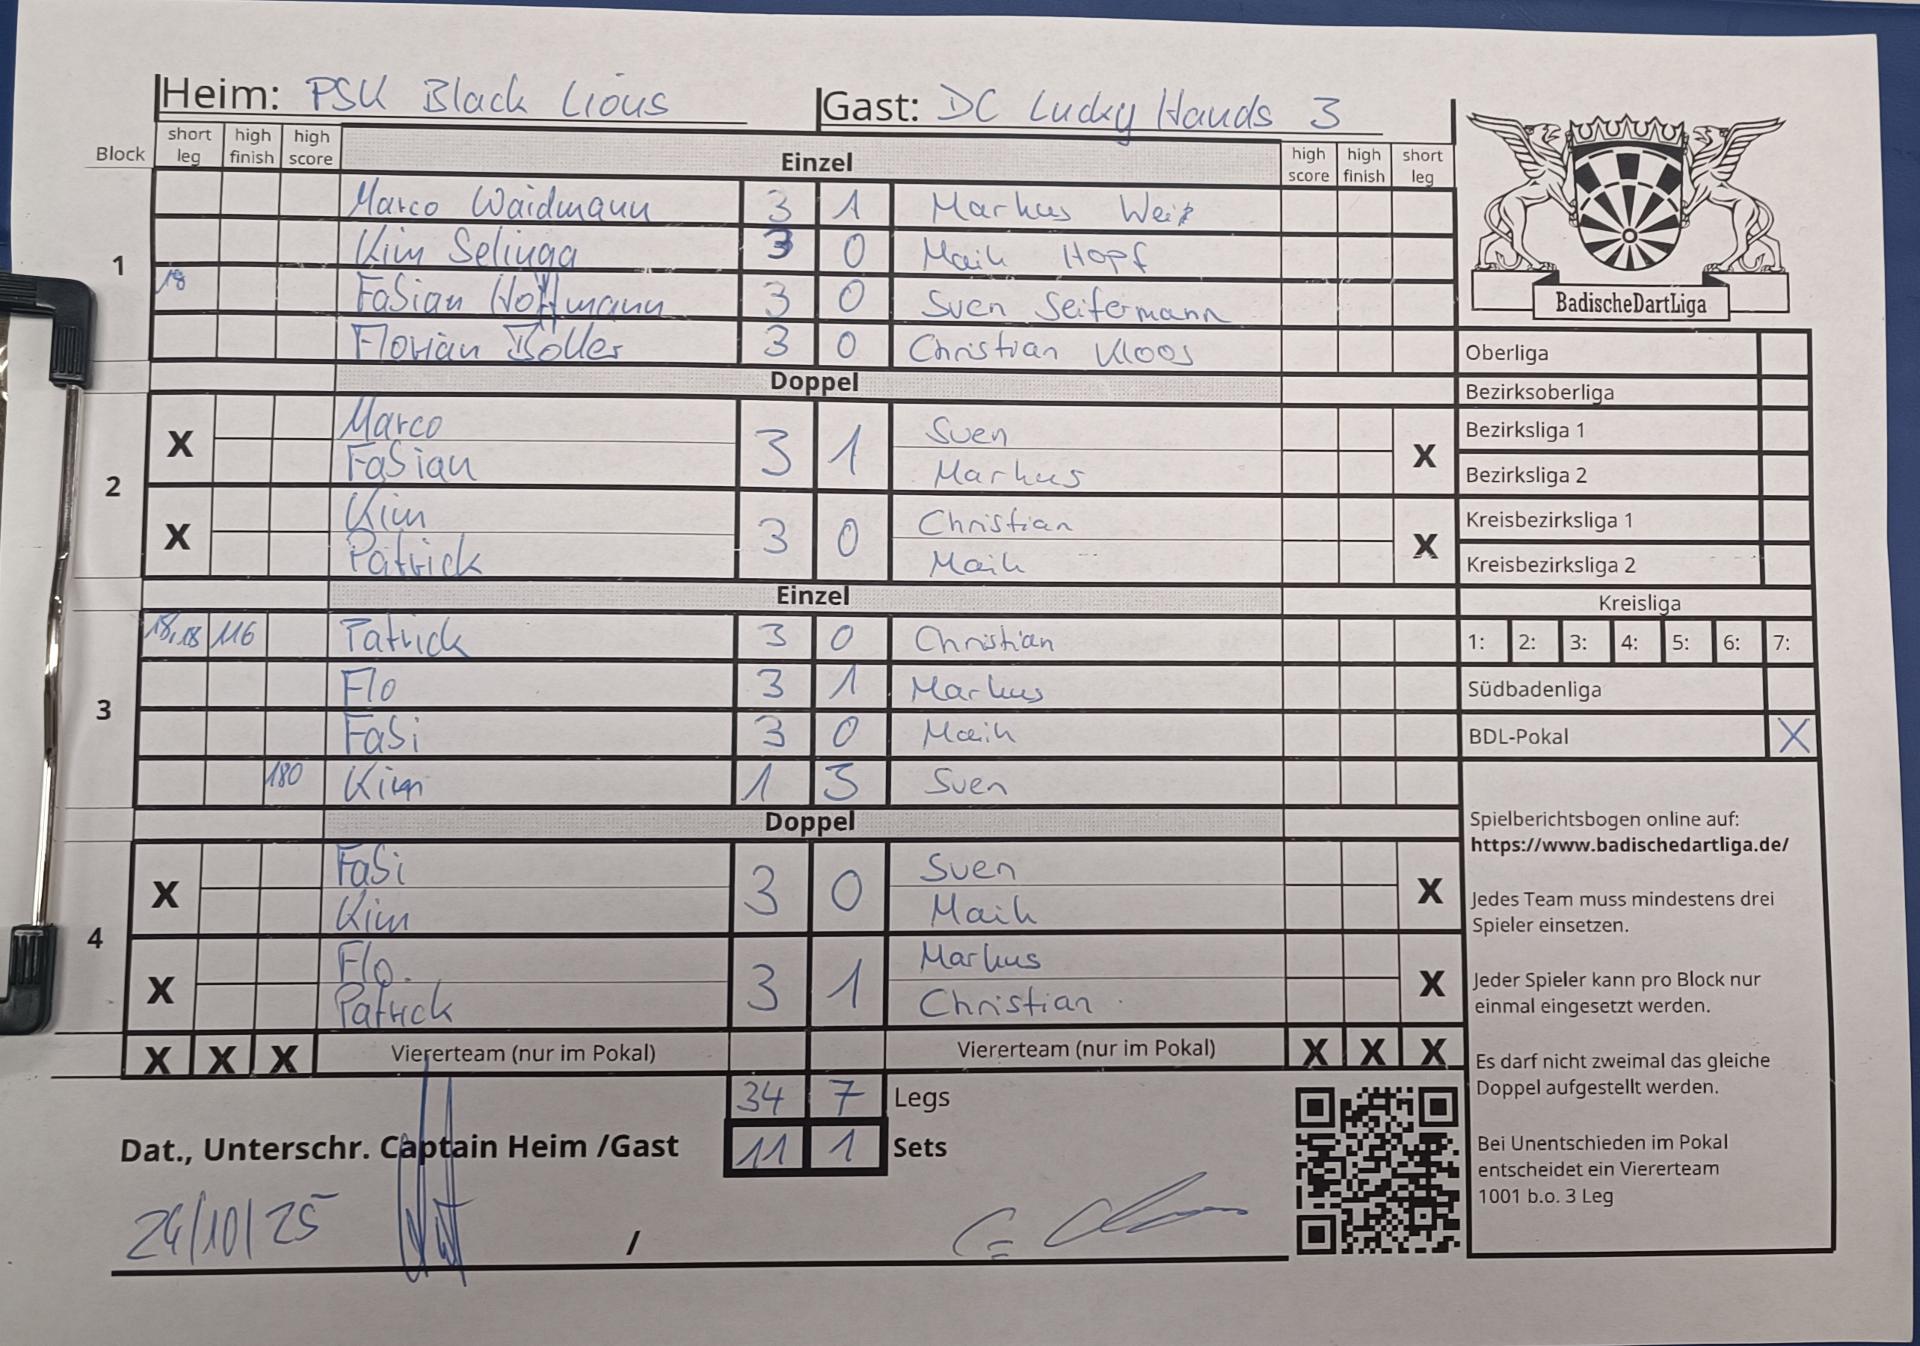 Heim: PSK Black Lions Gast: DC Lucky Hands 3
Block short leg high finish high score Einzel high score high finish short leg
1
Marco Waidmann 3 1 Markus Weiß
Kim Selinga 3 0 Maik Hopf
18 Fabian Hoffmann 3 0 Sven Seifermann
Florian Boller 3 0 Christian Kloos
Doppel
2
X Marco 3 1 Sven X
Fabian Markus
X Kim 3 0 Christian X
Patrick Maik
Einzel
3
18,18 116 Patrick 3 0 Christian
Flo 3 1 Markus
Fabi 3 0 Maik
180 Kim 1 3 Sven
Doppel
4
X Fabi 3 0 Sven X
Kim Maik
X Flo. 3 1 Markus X
Patrick Christian
X X X Viererteam (nur im Pokal) Viererteam (nur im Pokal) X X X
34 7 Legs
Dat., Unterschr. Captain Heim /Gast 11 1 Sets
24/10/25 /
BadischeDartLiga
Oberliga
Bezirksoberliga
Bezirksliga 1
Bezirksliga 2
Kreisbezirksliga 1
Kreisbezirksliga 2
Kreisliga
1: 2: 3: 4: 5: 6: 7:
Südbadenliga
BDL-Pokal X
Spielberichtsbogen online auf:
https://www.badischedartliga.de/
Jedes Team muss mindestens drei
Spieler einsetzen.
Jeder Spieler kann pro Block nur
einmal eingesetzt werden.
Es darf nicht zweimal das gleiche
Doppel aufgestellt werden.
Bei Unentschieden im Pokal
entscheidet ein Viererteam
1001 b.o. 3 Leg